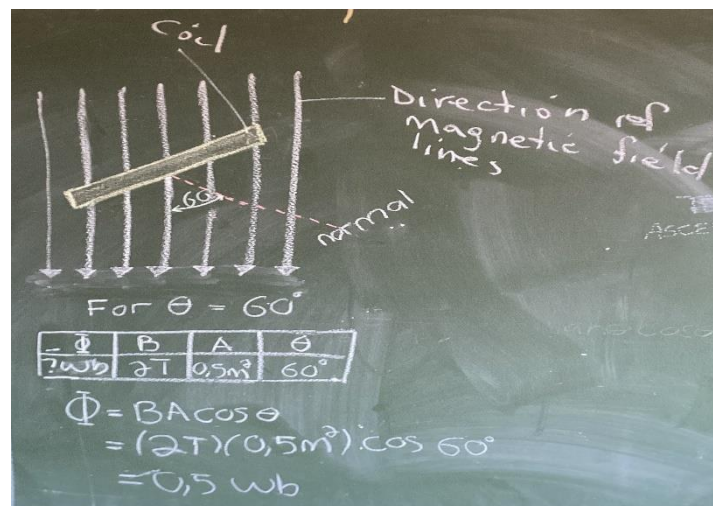 Coil
Direction of
magnetic field
lines
60°
normal
ASCE
For θ = 60°
Φ B A θ
?Wb 2T 0,5m² 60°
Φ = BAcosθ
= (2T)(0,5m²).cos 60°
= 0,5 Wb